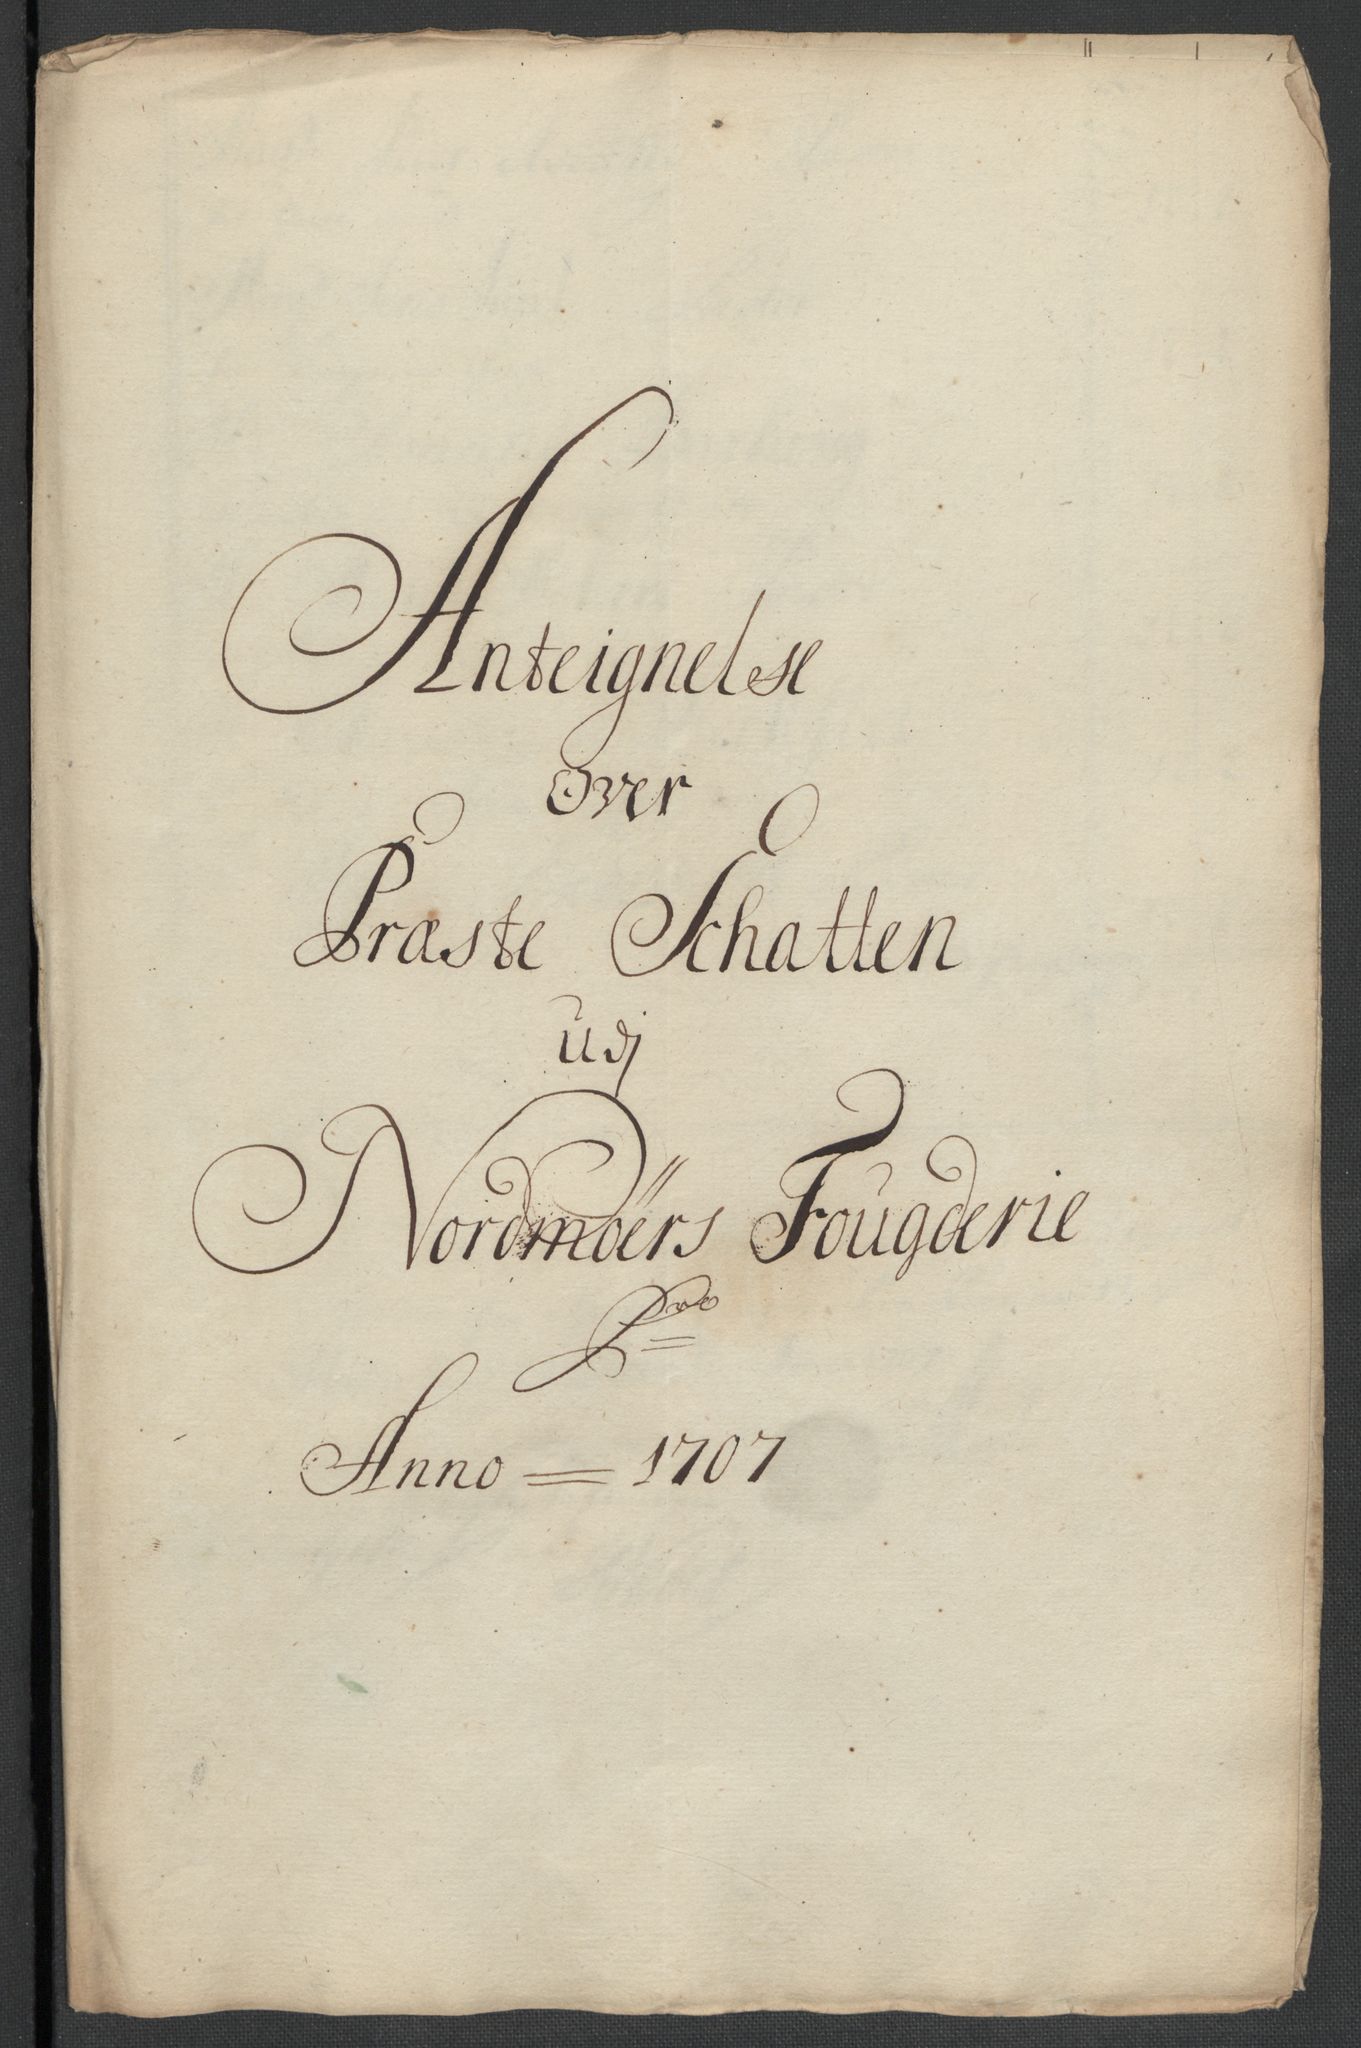 Anteignelse
over
Præste Schatten
udj
Nordmøers Fougderie
Pro
Anno = 1707